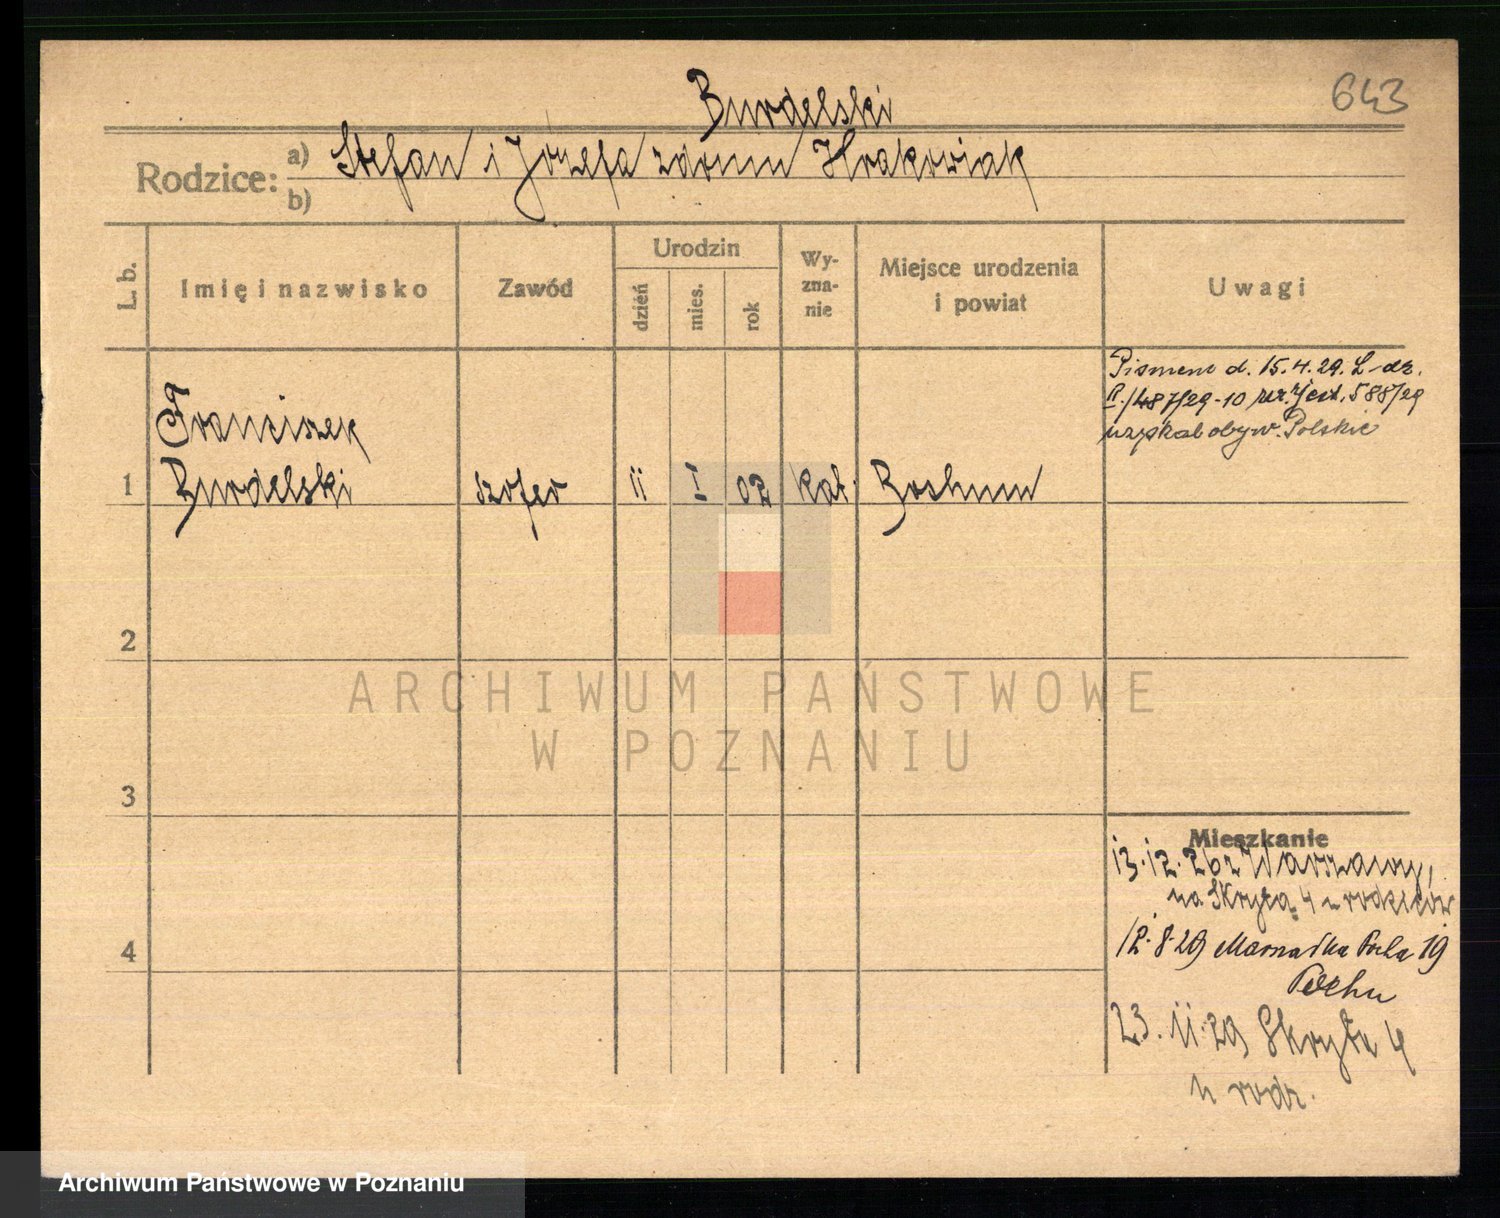 643
Burdelski
Rodzice: a) Stefan i Józefa zdomu Krakowiak
b)
L. b.
Imię i nazwisko
Zawód
Urodzin
dzień
mies.
rok
Wy-
zna-
nie
Miejsce urodzenia
i powiat
Uwagi
Pismem d. 15.4.29. L-dz.
II./487/29-10 rejest. 588/29
uzyskał obyw. Polskie
Franciszek
1 Burdelski szofer 11 I 02 kat. Bochum
2
3
4
Mieszkanie
13.12.26 z Warszawy,
na Skrytą 4 u rodziców
12.8.29 Pocha 19
Pochu
23.11.29 Skryta 4
u rodz.
ARCHIWUM PAŃSTWOWE
W POZNANIU
Archiwum Państwowe w Poznaniu